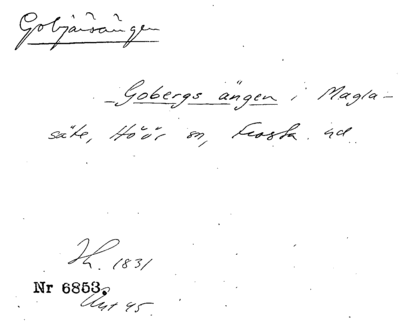 Gobjärsängen
Gobergs ängen i Magla-
säte, Höör sn, Frosta hd
Th. 1831
Nr 6853.
Avt 45.